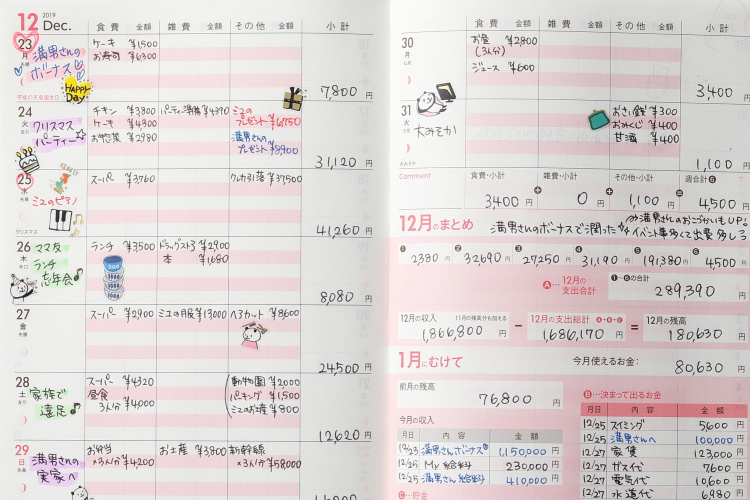 12 2019 Dec. 食費 金額 雑費 金額 その他 金額 小計
23 月 先勝 満男さんの ボーナス HAPPY Day 平成の天皇誕生日
ケーキ ¥1,500
お寿司 ¥6300
7,800円
24 火 友引 クリスマス パーティー☆
チキン ¥3800 パーティ準備 ¥4390 ミユの プレゼント ¥6,750
ケーキ ¥4300 満男さん プレゼント ¥8,900
お惣菜 ¥2980
31,120円
25 水 先負 ミユのピアノ クリスマス
スーパー ¥3,760 クレカ引落 ¥37,500
41,260円
26 木 ママ友 ランチ 忘年会♪
ランチ ¥3,500 ドラッグスト3 ¥2900
本 ¥1,680
500
8,080円
27 金 先勝
スーパー ¥2900 ミユの服 ¥13000 ヘアカット ¥8600
24,500円
28 土 友引 家族で 遠足♪
スーパー ¥4320 動物園 ¥2,000
昼食 3人分 ¥4,000 パーキング ¥1,500
ミユのお産 ¥800
12620円
29 日 先負 満男さんの 実家へ
お弁当 ×3人分 ¥4200 お土産 ¥3800 新幹線 ×3人分 ¥58000
食費 金額 雑費 金額 その他 金額 小計
30 月 仏滅
お昼 (3人分) ¥2,800
ジュース ¥600
3,400円
31 火 大安 大みそか 大みそか
おさい銭 ¥300
おみくじ ¥400
甘酒 ¥400
1,100円
Comment 食費・小計 雑費・小計 その他・小計 週合計❻
3400円 + 0円 + 1,100円 = 4,500円
12月のまとめ 満男さんのボーナスで潤った イベント事多くて出費多し 満男さんのおこづかいもUP!
❶ 2380円 ❷ 32690円 ❸ 27250円 ❹ 31,190円 ❺ 191,380円 ❻ 4,500円
Ⓐ…12月の支出合計 ❶〜❻の合計 289,390円
12月の収入 11月の残高分も加える 1,866,800円 − 12月の支出総計 Ⓐ+Ⓑ+Ⓒ 1,686,170円 = 12月の残高 180,630円
1月にむけて 今月使えるお金: 80,630円
前月の残高 76,800円
今月の収入
月日 内容 金額
12/23 満男さんボーナス 1,150,000円
12/25 My給料 230,000円
12/25 満男さん給料 410,000円
Ⓒ…貯金
Ⓑ…決まって出るお金
月日 内容 金額
12/25 スイミング 5600円
12/25 満男さんへ 100,000円
12/27 家賃 123,000円
12/27 ガス代 7600円
12/27 電気代 10,600円
12/27 水道代 6,980円